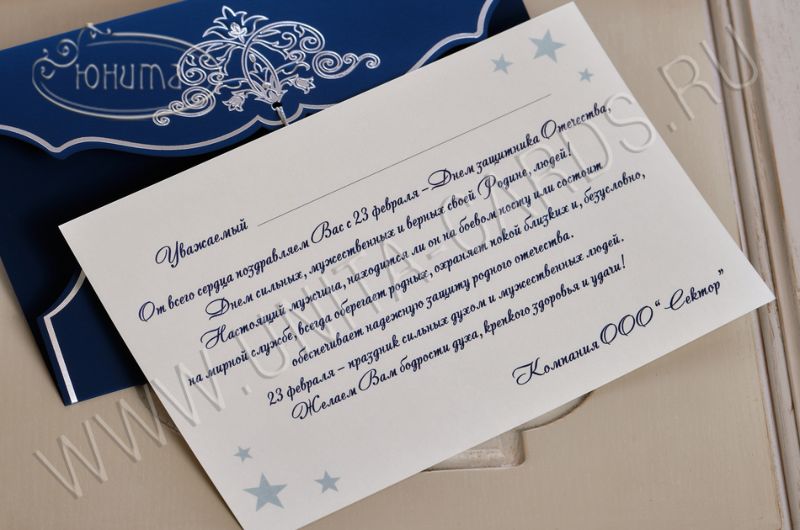 Юнита
Уважаемый
От всего сердца поздравляем Вас с 23 февраля – Днем защитника Отечества,
Днем сильных, мужественных и верных своей Родине, людей!
Настоящий мужчина, находится ли он на боевом посту или состоит
на мирной службе, всегда оберегает родных, охраняет покой близких и, безусловно,
обеспечивает надежную защиту родного отечества.
23 февраля – праздник сильных духом и мужественных людей.
Желаем Вам бодрости духа, крепкого здоровья и удачи!
Компания ООО “Сектор”
WWW.UNITA-CARDS.RU